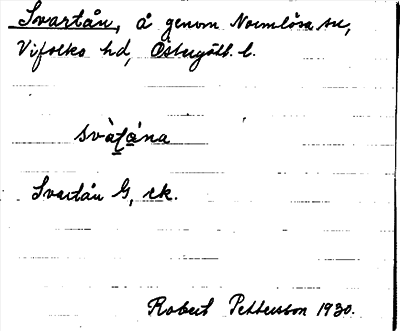 Svartån, å genom Normlösa sn,
Vifolka hd, Östergötl. l.
Svartån G, ek.
Robert Pettersson 1930.